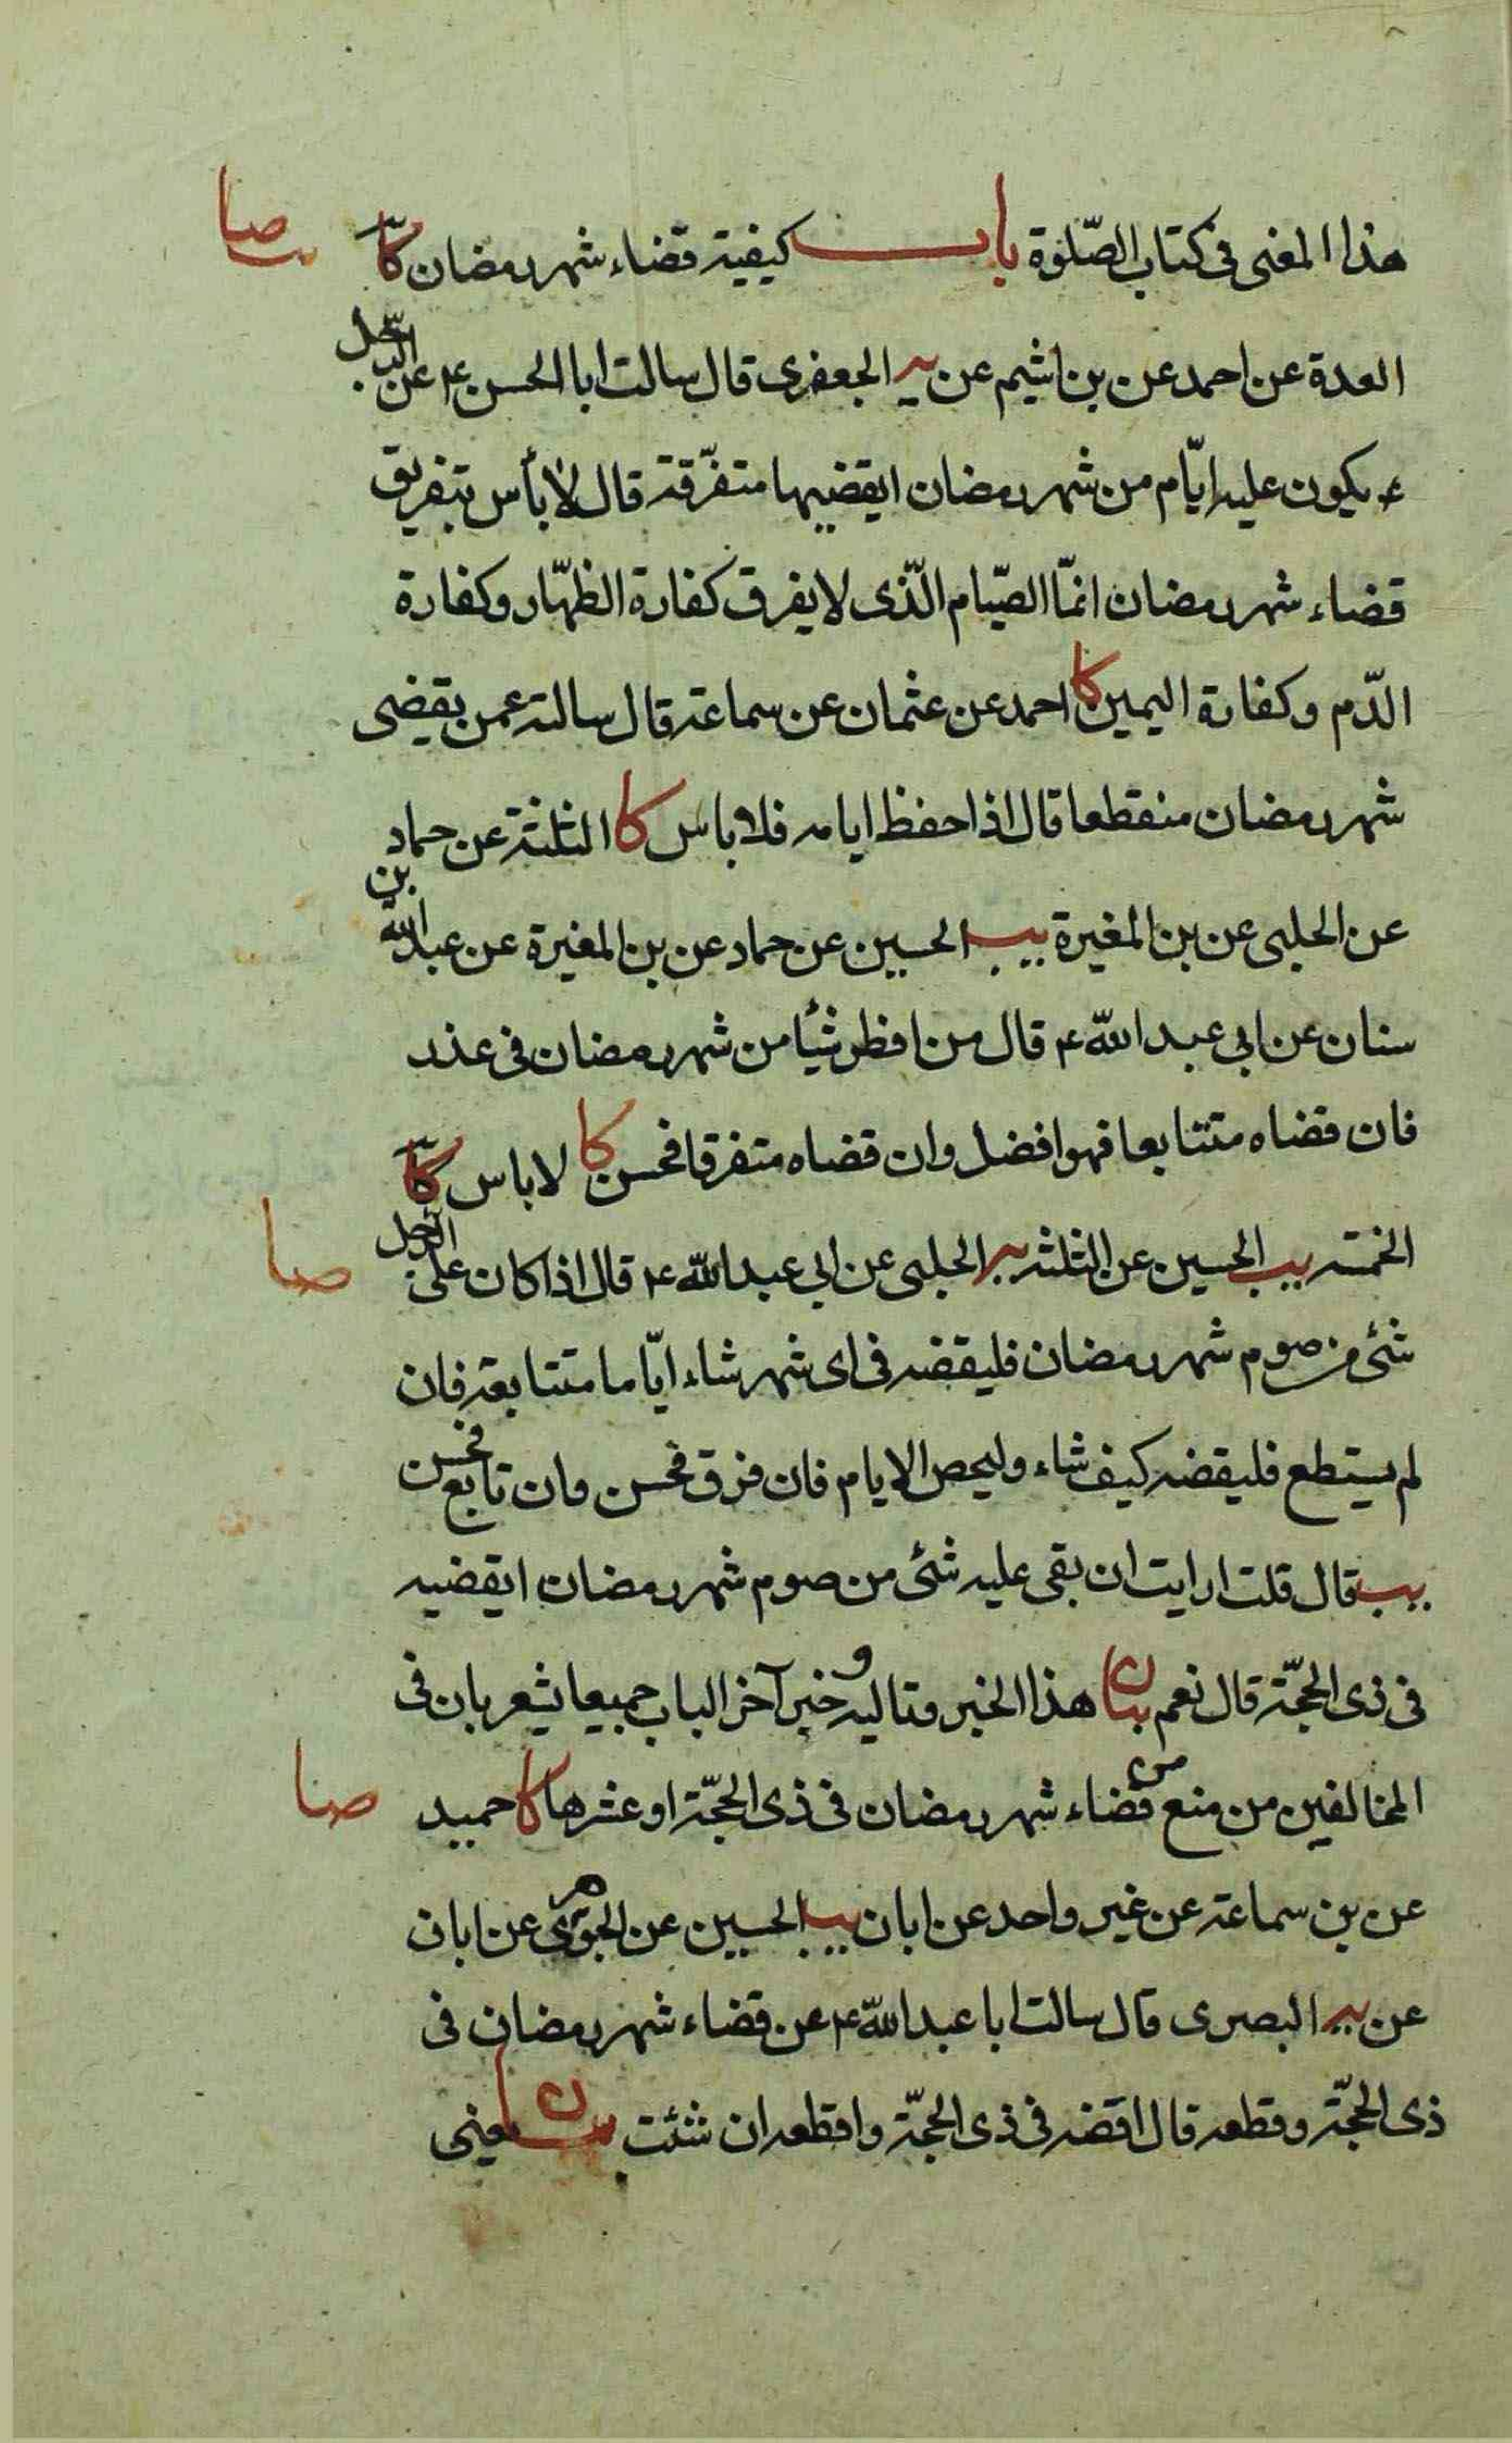 هذا المعنى فى كتاب الصّلوة باب كيفية قضاء شهر رمضان كا صا
العدة عن احمد عن بن اشيم عن يه الجعفرى قال سالت ابا الحسن ع عن الرّجل
ع يكون عليه ايّام من شهر رمضان ايقضيها متفرّقة قال لا بأس بتفريق
قضاء شهر رمضان انمّا الصّيام الّذى لا يفرق كفارة الظهّار وكفارة
الدّم وكفارة اليمين كا احمد عن عثمان عن سماعة قال سالته عمن يقضى
شهر رمضان منقطعا قال اذا حفظ ايامه فلا باس كا الثلثة عن حماد
عن الحلبى عن بن المغيرة يب الحسين عن حماد عن بن المغيرة عن عبد الله بن
سنان عن ابى عبد الله ع قال من افطر شيئا من شهر رمضان فى عذر
فان قضاه متتابعا فهو افضل وان قضاه متفرقا فحسن كا لا باس كا
الخمسة يب الحسين عن الثلثه يه الحلبى عن ابى عبد الله ع قال اذا كان على الرّجل صا
شئ من صوم شهر رمضان فليقضه فى اى شهر شاء ايّاما متتابعة فان
لم يستطع فليقضه كيف شاء وليحص الايام فان فرق فحسن وان تابع فحسن
يب قال قلت ارايت ان بقى عليه شئ من صوم شهر رمضان ايقضيه
فى ذى الحجّة قال نعم بيان هذا الخبر وتاليه وخبر آخر الباب جميعا يشعر بان فى
المخالفين من منع من قضاء شهر رمضان فى ذى الحجّة او عشرها كا حميد صا
عن بن سماعة عن غير واحد عن ابان يب الحسين عن الجوهرى عن ابان
عن يه البصرى قال سالت ابا عبد الله ع عن قضاء شهر رمضان فى
ذى الحجّة وقطعه قال اقضه فى ذى الحجّة واقطعه ان شئت بيان يعنى